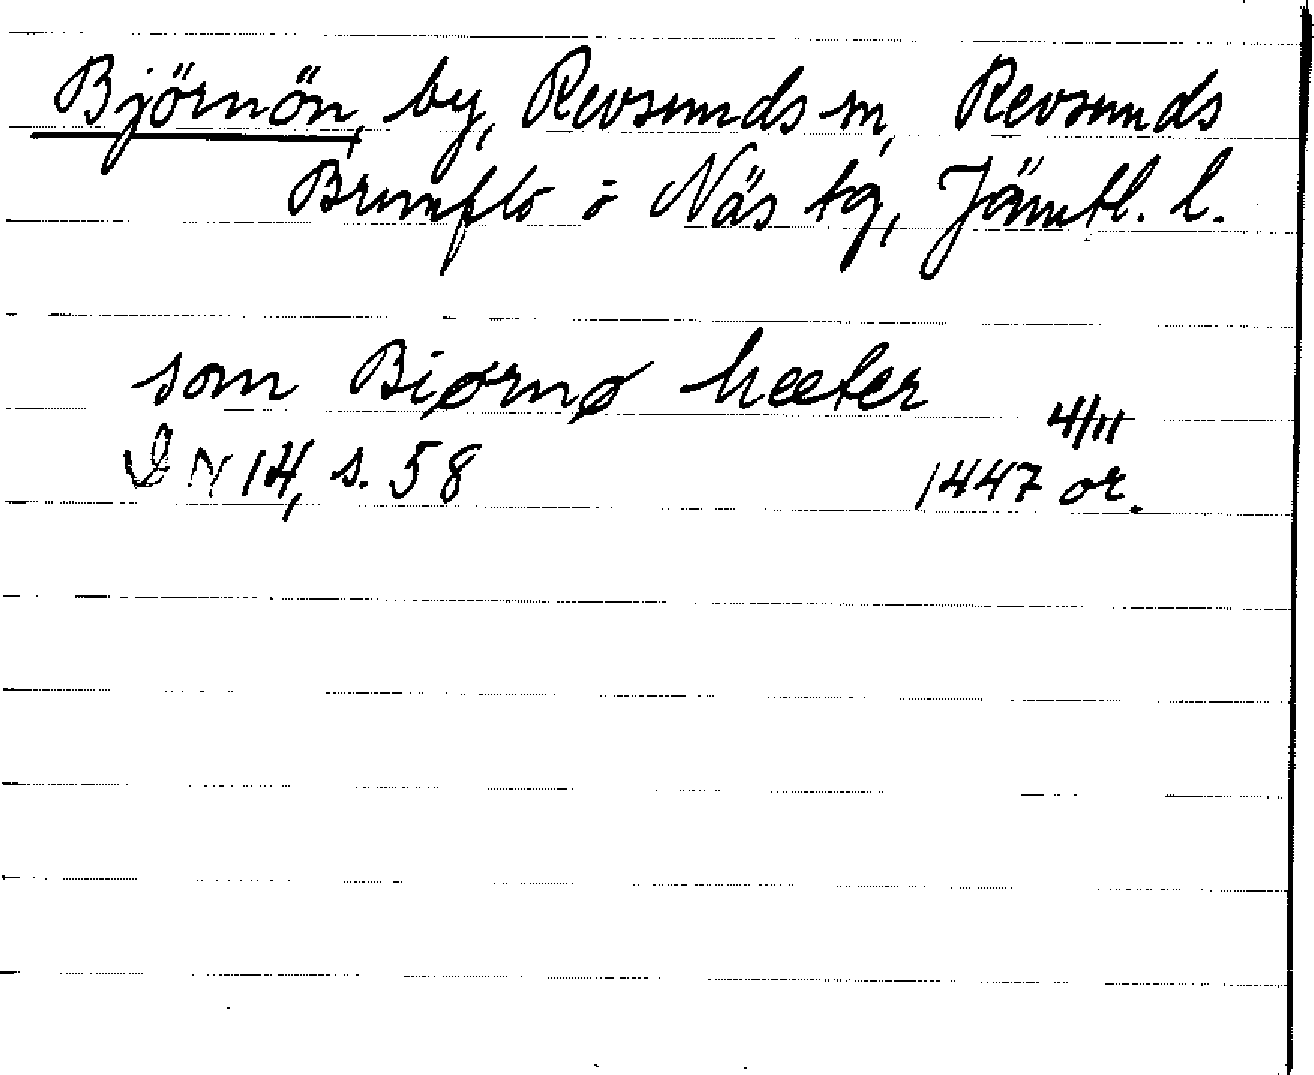 Björnön, by, Revsunds sn, Revsunds
Brunflo o Näs tg, Jämtl. l.
som Biørnø heeter
4/11
DN 14, s. 58 1447 or.